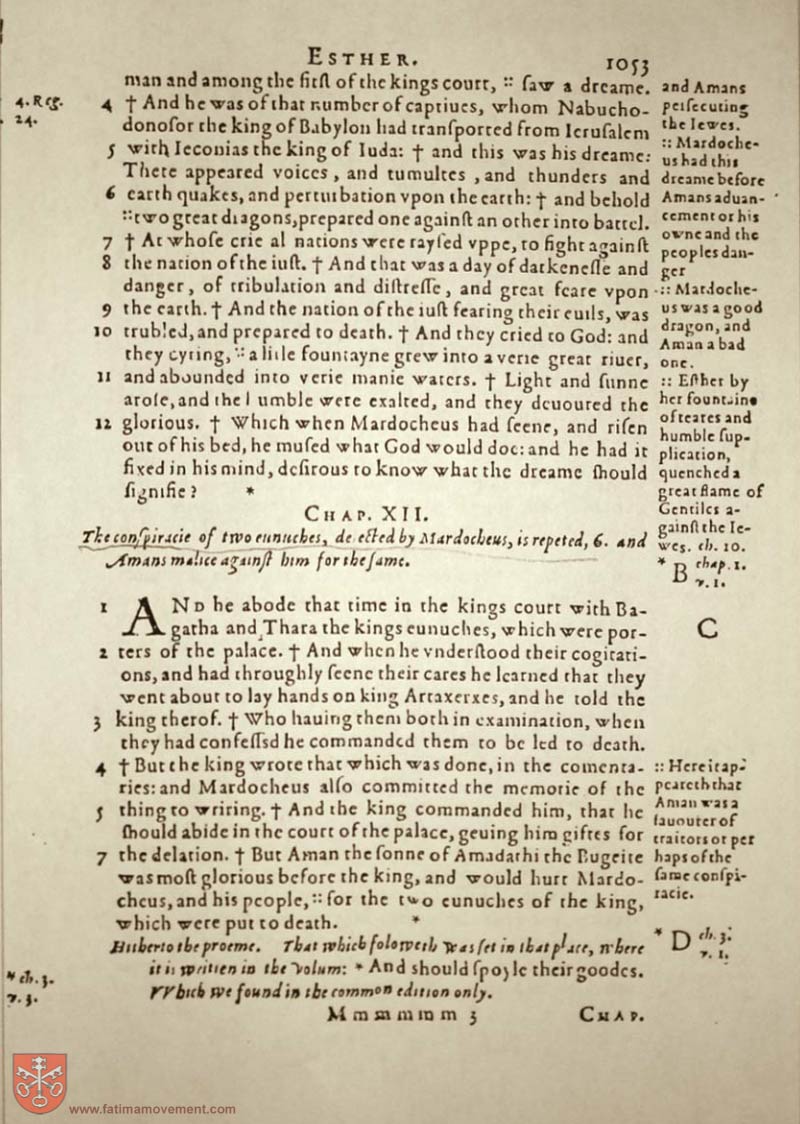 ESTHER. 1053
man and among the first of the kings court, :: saw a dreame.
4 † And he was of that number of captiues, whom Nabucho-
donosor the king of Babylon had transported from Ierusalem
5 with Ieconias the king of Iuda: † and this was his dreame:
There appeared voices, and tumultes, and thunders and
6 earth quakes, and perturbation vpon the earth: † and behold
:: two great dragons, prepared one against an other into battel.
7 † At whose crie al nations were raysed vppe, to fight against
8 the nation of the iust. † And that was a day of darkenesse and
danger, of tribulation and distresse, and great feare vpon
9 the earth. † And the nation of the iust fearing their euils, was
10 trubled, and prepared to death. † And they cried to God: and
they cying, :: a litle fountayne grew into a verie great riuer,
11 and abounded into verie manie waters. † Light and sunne
arose, and the humble were exalted, and they deuoured the
12 glorious. † Which when Mardocheus had seene, and risen
out of his bed, he mused what God would doe: and he had it
fixed in his mind, desirous to know what the dreame should
signifie? *
4. Reg.
24.
and Amans
persecuting
the Iewes.
:: Mardoche-
us had this
dreame before
Amans aduan-
cement or his
owne and the
peoples dan-
ger
:: Mardoche-
us was a good
dragon, and
Aman a bad
one.
:: Esther by
her fountaine
of teares and
humble sup-
plication,
quenched a
great flame of
Gentiles a-
gainst the Ie-
wes. ch. 10.
* B chap. 1.
v. 1.
CHAP. XII.
The conspiracie of two eunuches, detected by Mardocheus, is repeted, 6. and
Amans malice against him for the same.
1 AND he abode that time in the kings court with Ba-
gatha and Thara the kings eunuches, which were por-
2 ters of the palace. † And when he vnderstood their cogitati-
ons, and had throughly seene their cares he learned that they
went about to lay hands on king Artaxerxes, and he told the
3 king therof. † Who hauing them both in examination, when
they had confessed he commanded them to be led to death.
4 † But the king wrote that which was done, in the comenta-
ries: and Mardocheus also committed the memorie of the
5 thing to writing. † And the king commanded him, that he
should abide in the court of the palace, geuing him giftes for
7 the delation. † But Aman the sonne of Amadathi the Bugeite
was most glorious before the king, and would hurt Mardo-
cheus, and his people, :: for the two eunuches of the king,
which were put to death. *
Hitherto the proeme. That which foloweth was set in that place, where
it is written in the volum: * And should spoyle their goodes.
VVhich we found in the common edition only.
C
:: Here it ap-
peareth that
Aman was a
fauouter of
traitors or per
haps of the
same conspi-
racie.
* D ch. 3.
v. 1.
* ch. 3.
v. 3.
Mmmmmm 3 CHAP.
www.fatimamovement.com